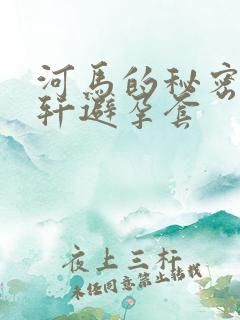 河马的秘密
轩避笙套
夜上三杆
未经同意禁止转载